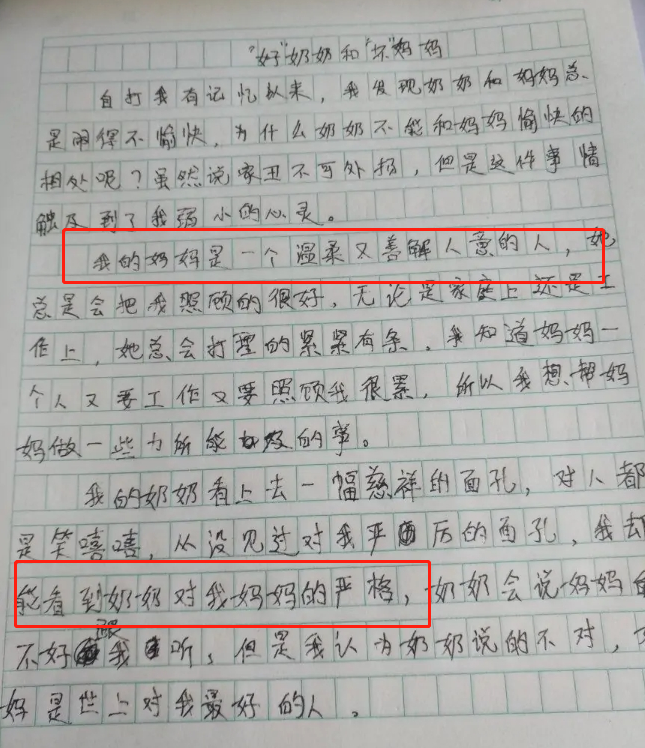 "好"奶奶和"坏"妈妈
自打我有记忆以来，我发现奶奶和妈妈总
是闹得不愉快，为什么奶奶不能和妈妈愉快的
相处呢？虽然说家丑不可外扬，但是这件事情
触及到了我弱小的心灵。
我的妈妈是一个温柔又善解人意的人，她
总是会把我照顾的很好，无论是家庭上还是工
作上，她总会打理的紧紧有条，我知道妈妈一
个人又要工作又要照顾我很累，所以我想帮妈
妈做一些力所能及的事。
我的奶奶看上去一幅慈祥的面孔，对人都
是笑嘻嘻，从没见过对我严厉的面孔，我却
能看到奶奶对我妈妈的严格，奶奶会说妈妈的
不好跟我听，但是我认为奶奶说的不对，
妈是世上对我最好的人。